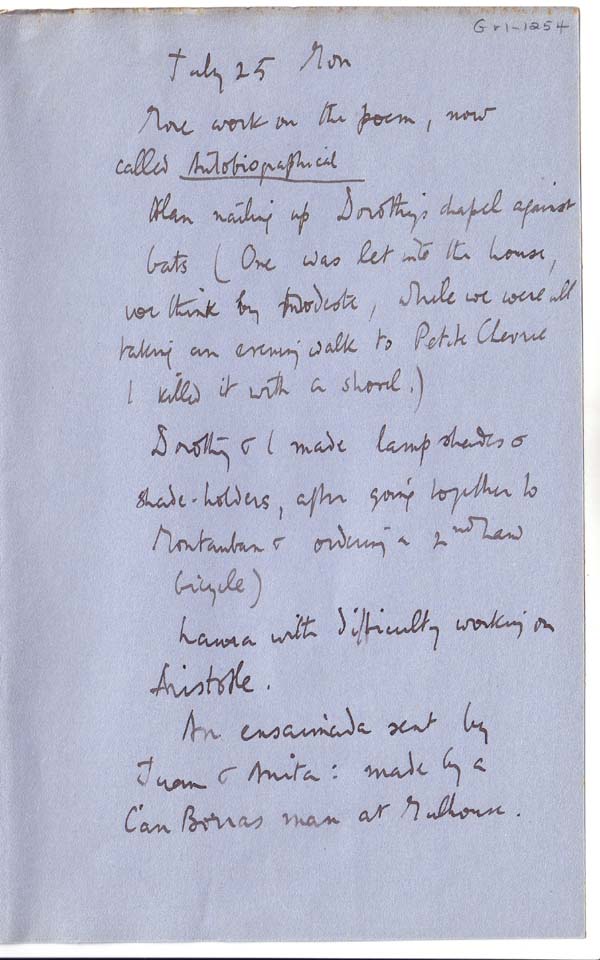 Gr1-1254
July 25 Mon
More work on the poem, now
called Autobiographical
Alan nailing up Dorothy's chapel against
bats (One was let into the house,
we think by Modeste, while we were all
taking an evening walk to Petite Chevrie
I killed it with a shovel.)
Dorothy & I made lamp shades &
shade-holders, after going together to
Montauban & ordering a 2nd hand
bicycle)
Laura with difficulty working on
Aristotle.
An ensaimada sent by
Juan & Anita: made by a
C'an Borras man at Mulhouse.